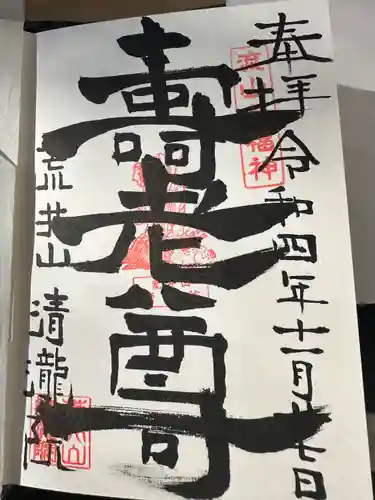 奉拝
令和四年十一月十七日
壽老尊
荒井山
清瀧院